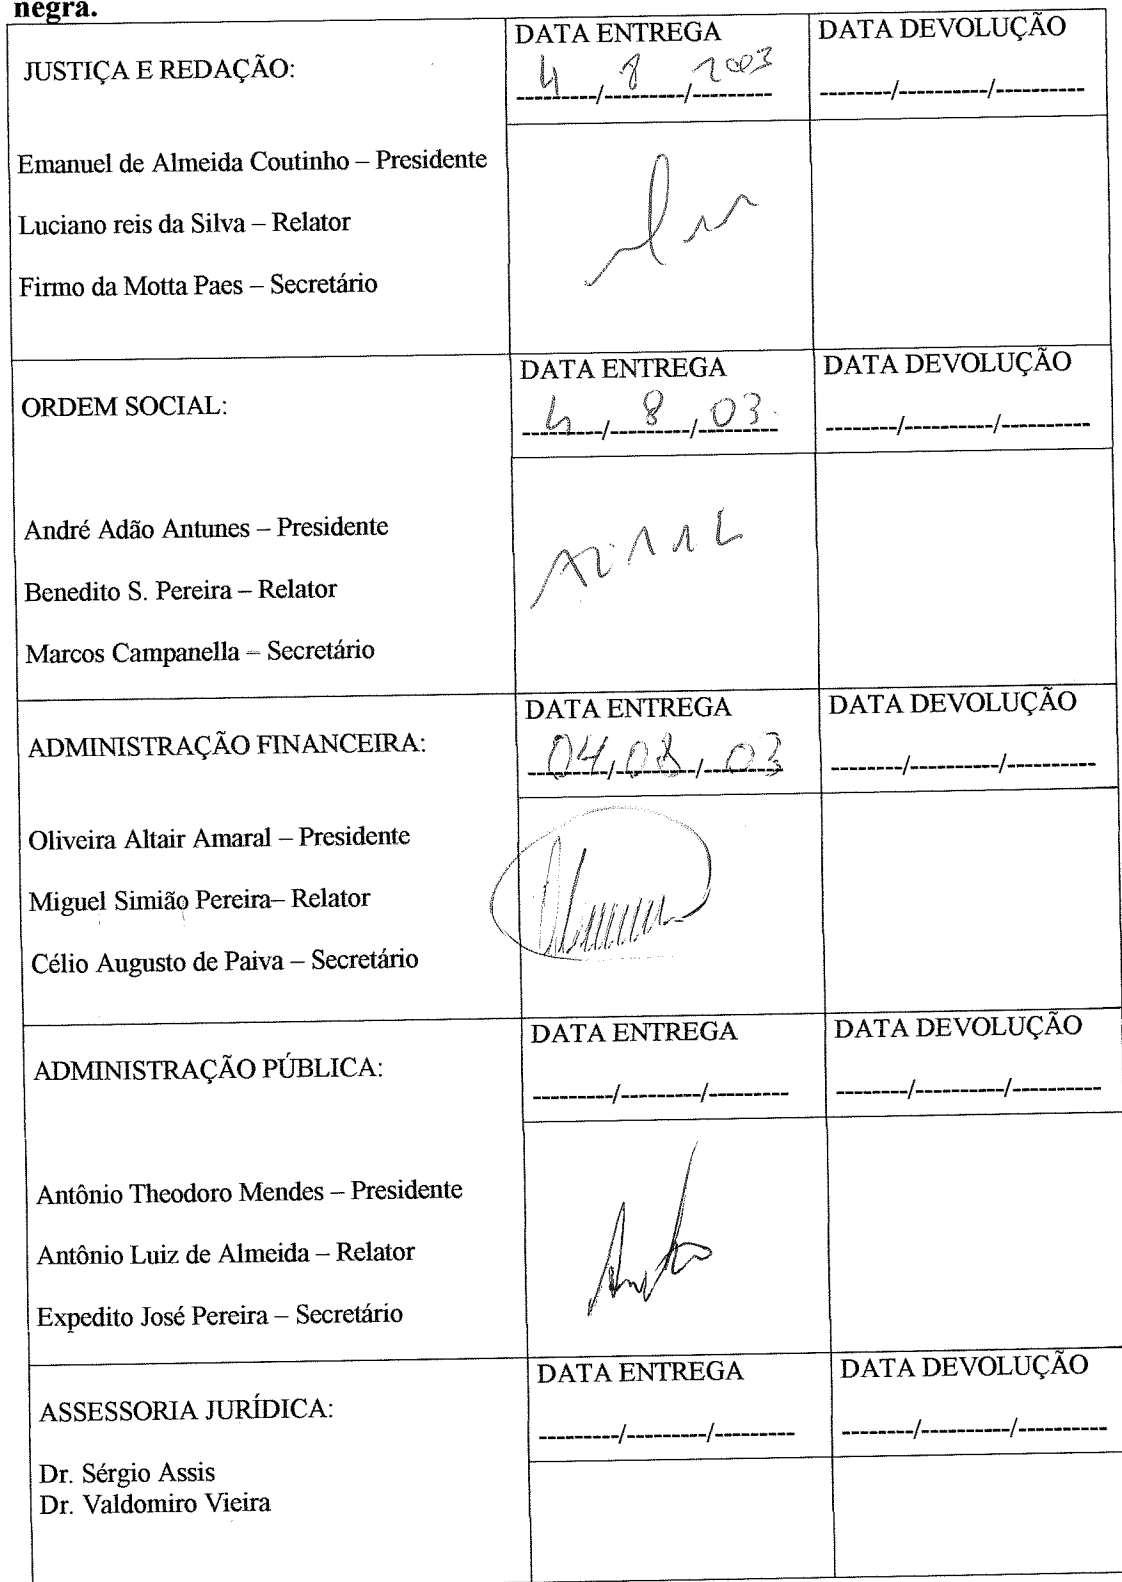 negra.
JUSTIÇA E REDAÇÃO:
DATA ENTREGA
4 / 8 / 2003
DATA DEVOLUÇÃO
--------/----------/----------
Emanuel de Almeida Coutinho – Presidente
Luciano reis da Silva – Relator
Firmo da Motta Paes – Secretário
ORDEM SOCIAL:
DATA ENTREGA
4 / 8 / 03
DATA DEVOLUÇÃO
--------/----------/----------
André Adão Antunes – Presidente
Benedito S. Pereira – Relator
Marcos Campanella – Secretário
ADMINISTRAÇÃO FINANCEIRA:
DATA ENTREGA
04 / 08 / 03
DATA DEVOLUÇÃO
--------/----------/----------
Oliveira Altair Amaral – Presidente
Miguel Simião Pereira– Relator
Célio Augusto de Paiva – Secretário
ADMINISTRAÇÃO PÚBLICA:
DATA ENTREGA
---------/---------/---------
DATA DEVOLUÇÃO
--------/----------/----------
Antônio Theodoro Mendes – Presidente
Antônio Luiz de Almeida – Relator
Expedito José Pereira – Secretário
ASSESSORIA JURÍDICA:
DATA ENTREGA
---------/---------/---------
DATA DEVOLUÇÃO
--------/----------/----------
Dr. Sérgio Assis
Dr. Valdomiro Vieira